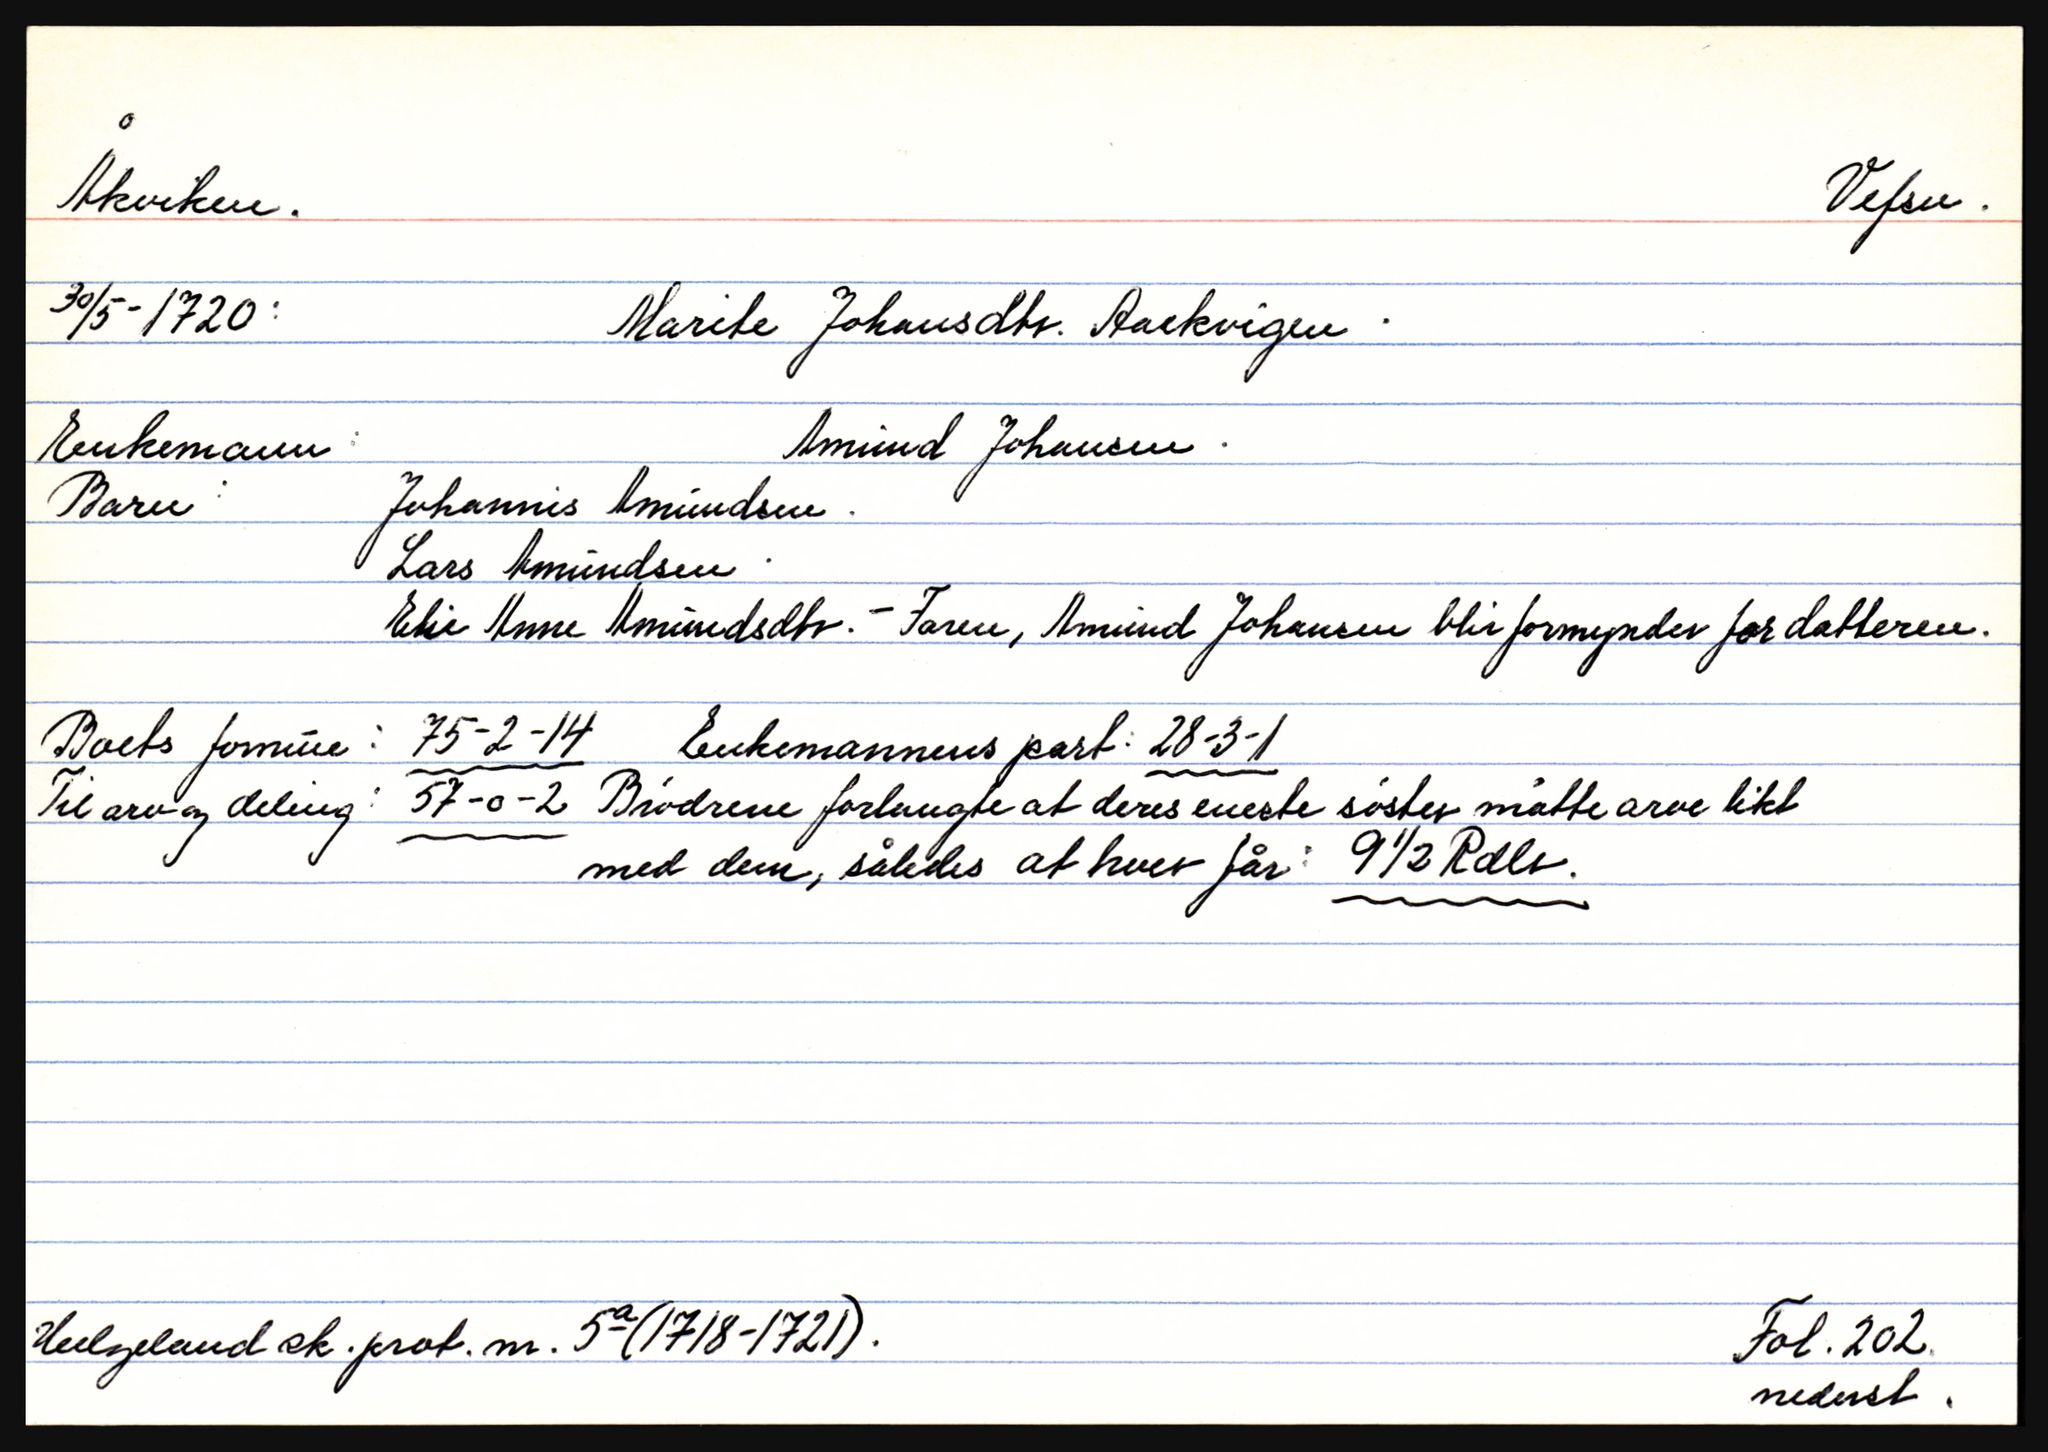 Åkviken. Vefsn.
30/5-1720: Marite Johansdtr. Aackvigen.
Enkemann: Amund Johansen.
Barn: Johannis Amundsen.
Lars Amundsen.
Elie Anne Amundsdtr. - Faren, Amund Johansen blir formynder for datteren.
Boets formue: 75-2-14 Enkemannens part: 28-3-1
Til arv og deling: 57-0-2 Brödrene forlangte at deres eneste söster måtte arve likt
med dem, således at hver får: 9 1/2 Rdlr.
Helgeland sk. prot. nr. 5a (1718-1721). Fol. 202
nederst.